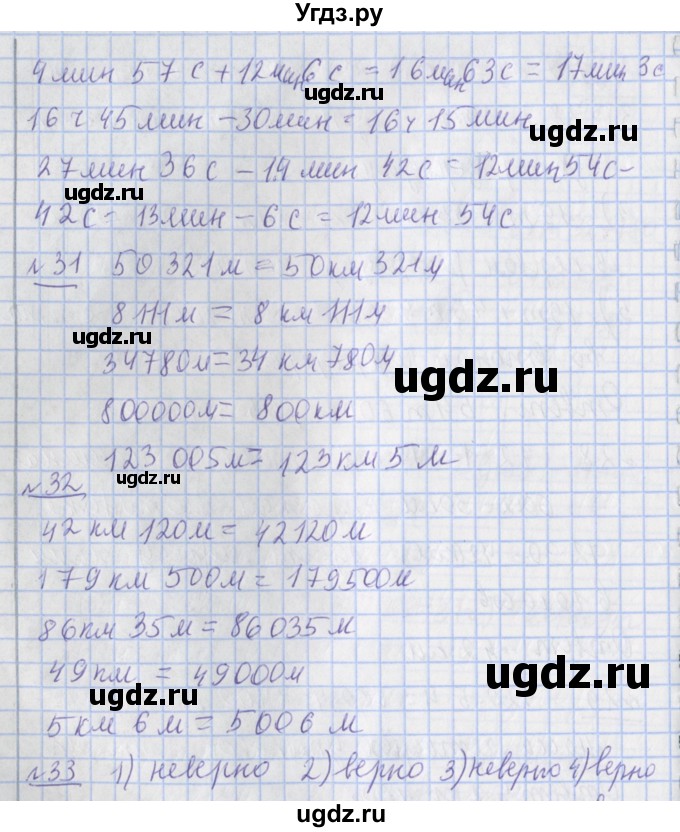 Угдз.ру
4 мин 57 с + 12 мин 6 с = 16 мин 63 с = 17 мин 3 с
16 ч 45 мин - 30 мин = 16 ч 15 мин
27 мин 36 с - 14 мин 42 с = 12 мин 54 с -
ugdz.ru ugdz.ru
42 с - 13 мин - 6 с = 12 мин 54 с
№31 50 321 м = 50 км 321 м
8111 м = 8 км 111 м
ugdz.ru
34780 м = 34 км 780 м
ugdz.ru
800000 м = 800 км
123 005 м = 123 км 5 м
ugdz.ru
№32
42 км 120 м = 42120 м
179 км 500 м = 179500 м
86 км 35 м = 86035 м
49 км = 49000 м
ugdz.ru
ugdz.ru
5 км 6 м = 5006 м
№33 1) неверно 2) верно 3) неверно 4) верно
ugdz.ru
ugdz.ru